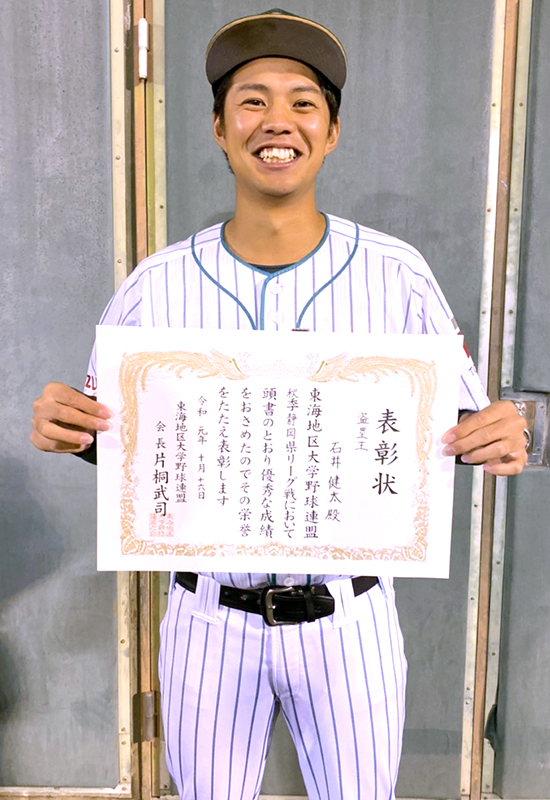 表彰状
盗塁王
石井健太殿
東海地区大学野球連盟
秋季静岡県リーグ戦において
頭書のとおり優秀な成績
をおさめたのでその栄誉
をたたえ表彰します
令和元年十月十六日
東海地区大学野球連盟
会長片桐武司
ZU